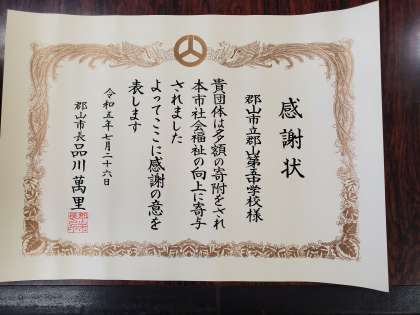 感謝状
郡山市立郡山第五中学校様
貴団体は多額の寄附をされ
本市社会福祉の向上に寄与
されました
よってここに感謝の意を
表します
令和五年七月二十六日
郡山市長 品川萬里